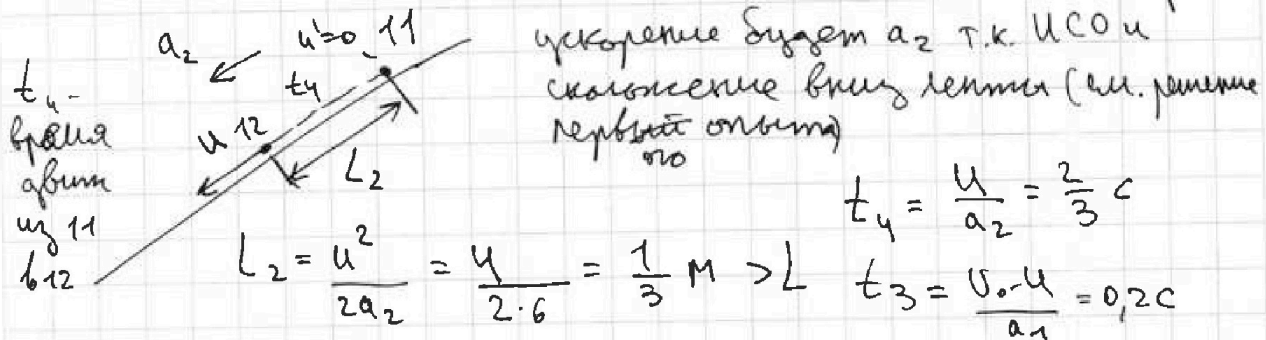 a₂ u'=0 11
t₄
t₄ -
время
движ
из 11
в 12
u 12
L₂
ускорение будет a₂ т.к. ИСО и
скольжение вниз ленты (см. решение
первого опыта)
t₄ = u/a₂ = 2/3 с
L₂ = u²/2a₂ = 4/2·6 = 1/3 м > L
t₃ = v₀-u/a₁ = 0,2с